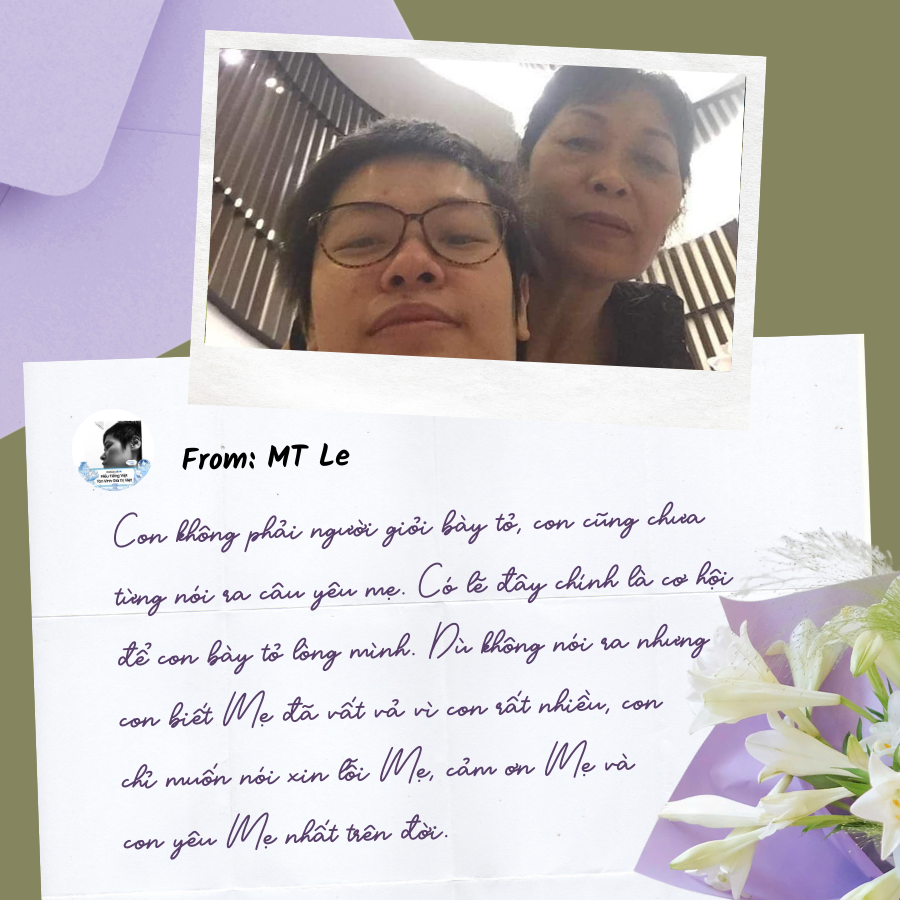 From: MT Le
Con không phải người giỏi bày tỏ, con cũng chưa
từng nói ra câu yêu mẹ. Có lẽ đây chính là cơ hội
để con bày tỏ lòng mình. Dù không nói ra nhưng
con biết Mẹ đã vất vả vì con rất nhiều, con
chỉ muốn nói xin lỗi Mẹ, cảm ơn Mẹ và
con yêu Mẹ nhất trên đời.